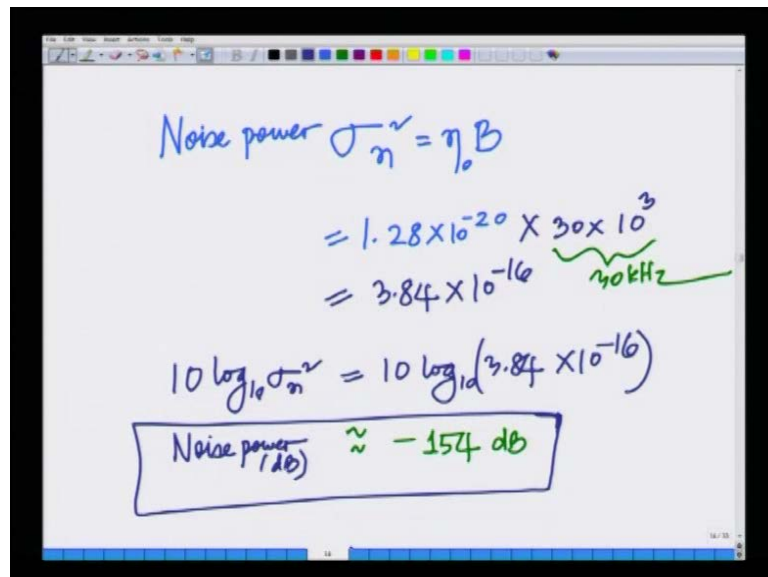 File Edit View Insert Actions Tools Help
Noise power σₙ² = η₀B
= 1.28×10⁻²⁰ × 30×10³
30kHz
= 3.84×10⁻¹⁶
10 log₁₀ σₙ² = 10 log₁₀(3.84×10⁻¹⁶)
Noise power (dB) ≈ -154 dB
14